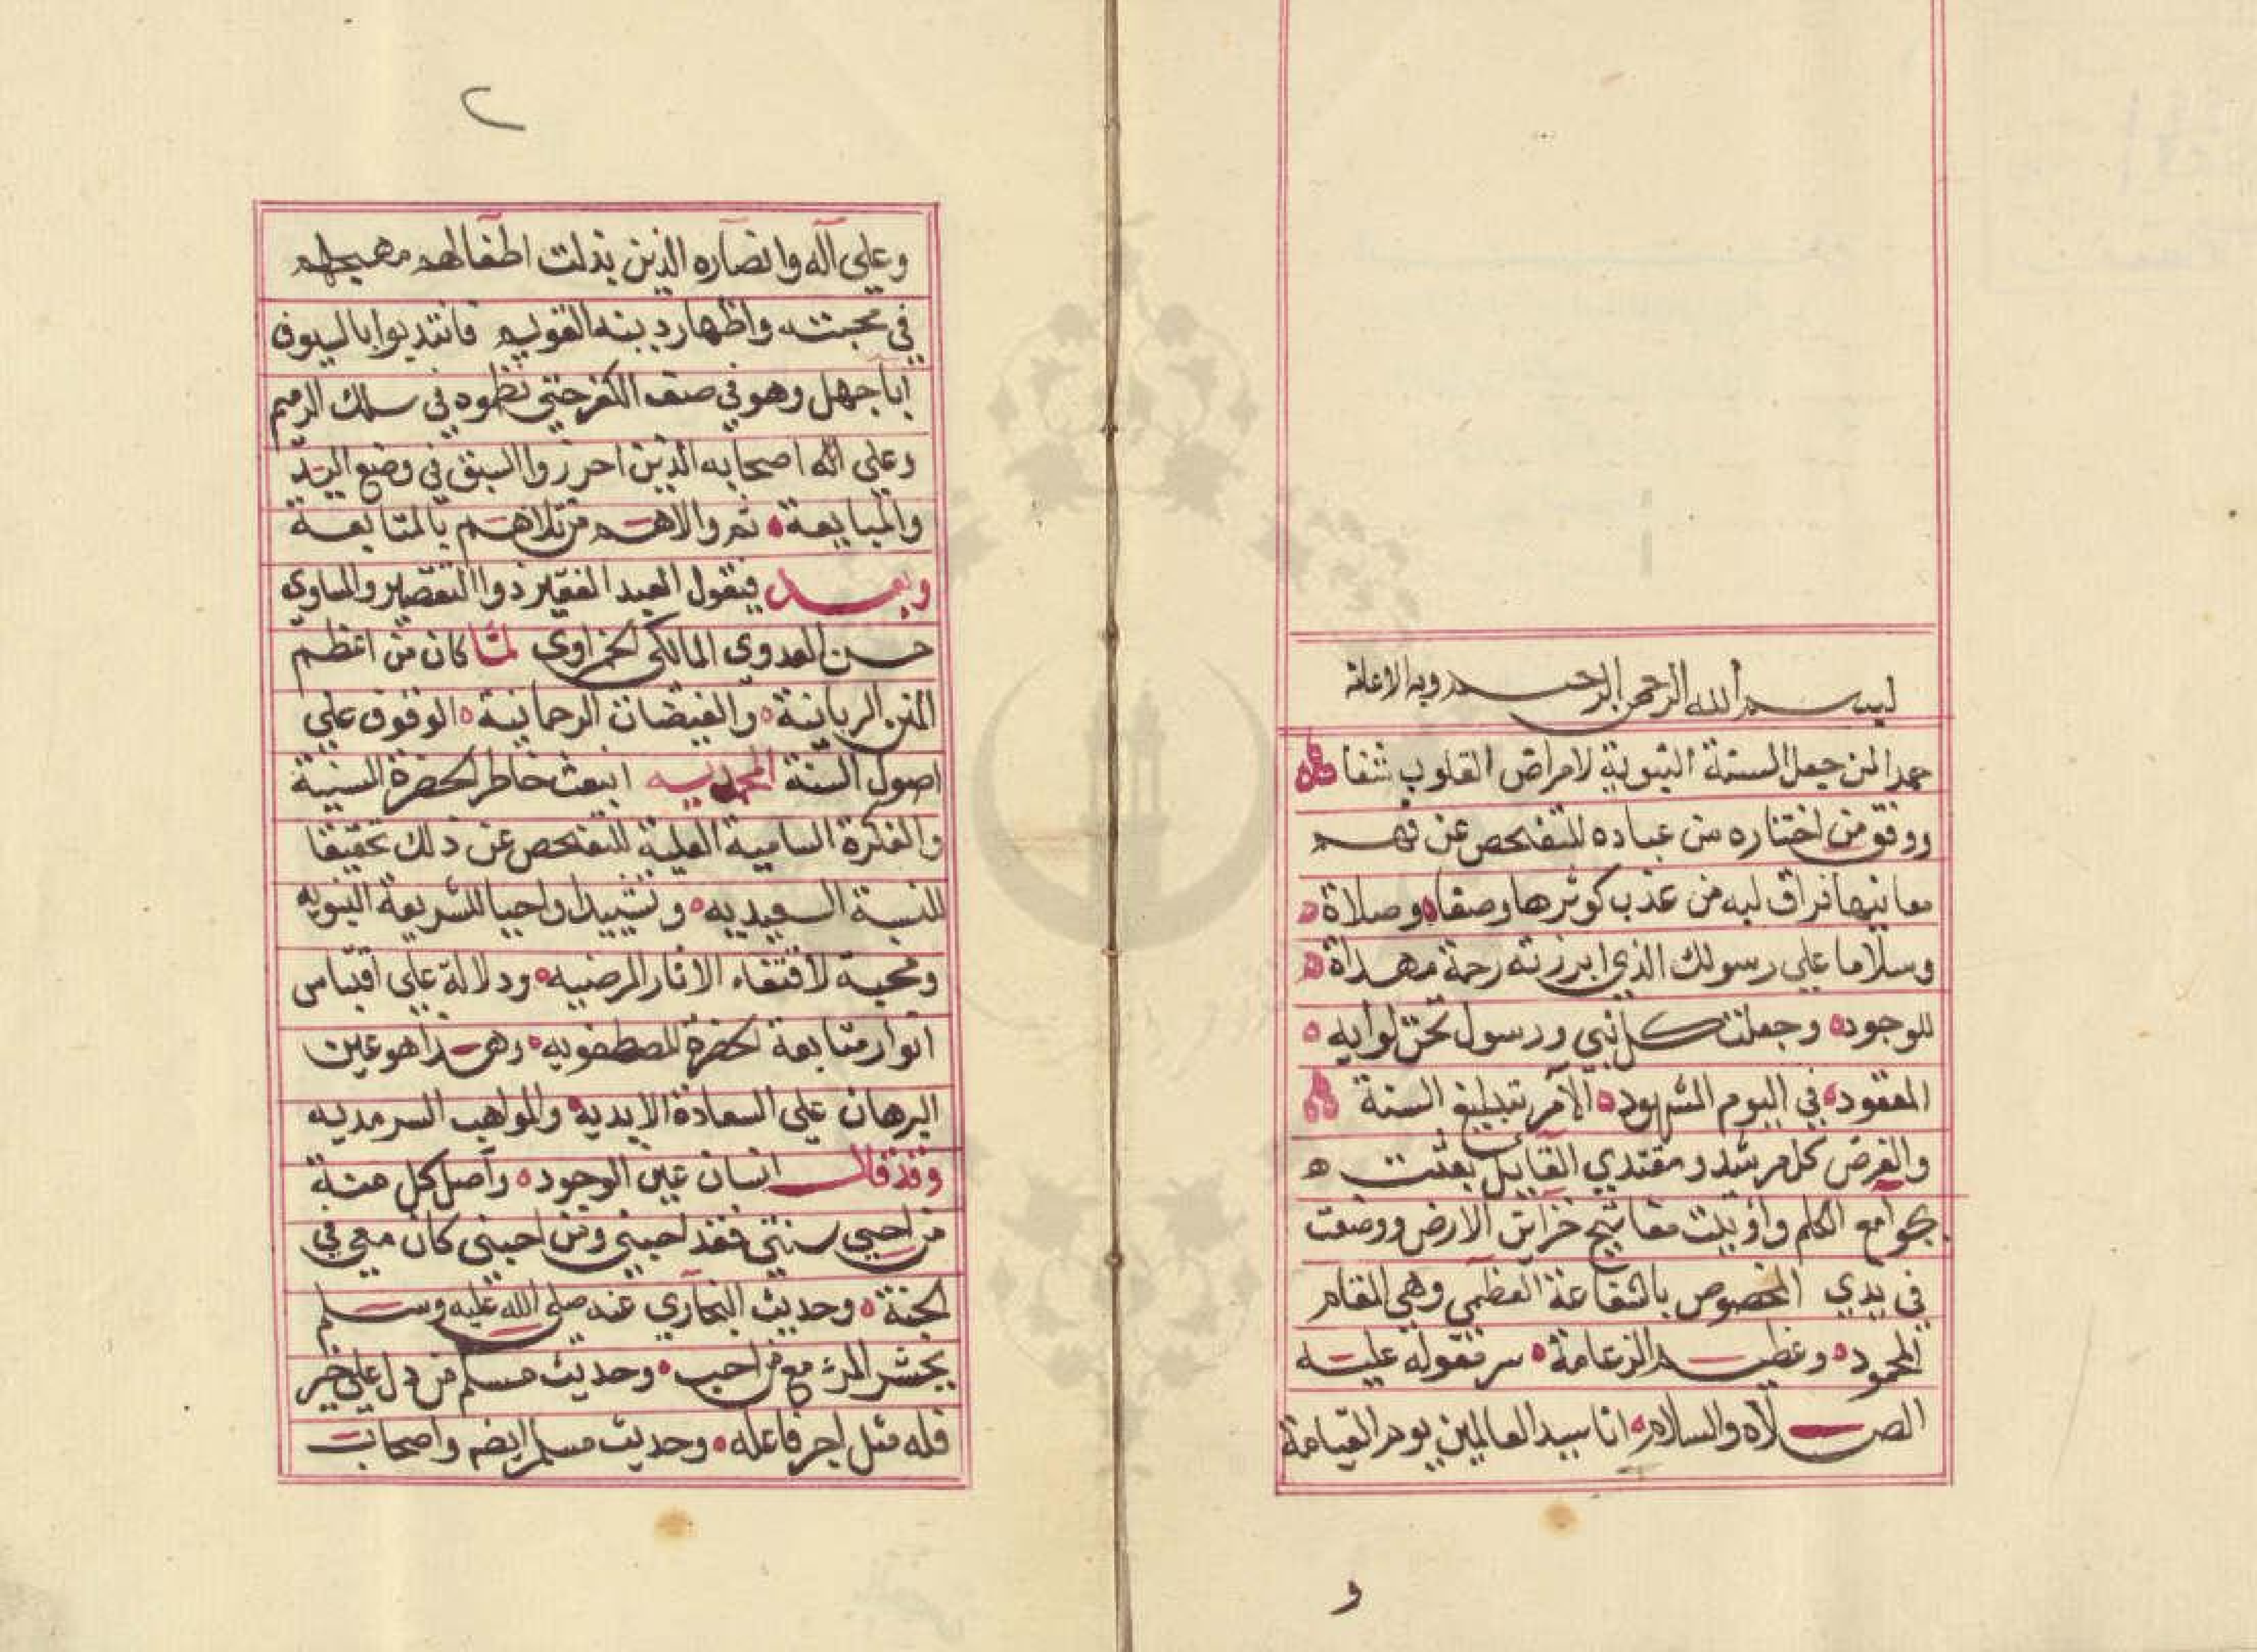 بسم الله الرحمن الرحيم وبه الاعانة
حمدا لمن جعل السنة النبوية لامراض القلوب شفا
ووفق من اختاره من عباده للتفحص عن فهم
معانيها فراق لبه من عذب كوثرها وصفا وصلاة
وسلاما على رسولك الذي ابرزته رحمة مهداة
للوجود وجعلت كل نبي ورسول تحت لوايه
المعقود في اليوم المشهود الآمر بتبليغ السنة
والفرض كل مرشد ومقتدي القايل بعثت
بجوامع الكلم واوتيت مفاتيح خزاين الارض ووضعت
في يدي المخصوص بالشفاعة العظمى وهي المقام
المحمود وعظيم الزعامة سر مقوله عليه
الصلاه والسلام انا سيد العالمين يوم القيامة
و
٢
وعلى آله وانصاره الذين بذلت اطفالهم مهجهم
في محبته واظهار دينه القويم فانتدبوا بالسيوف
ابا جهل وهو في صف الكفر حتى نظموه في سلك الرميم
وعلى آله اصحابه الذين احرزوا السبق في وضع اليد
والمبايعة ثم والاهم من تلاهم بالمتابعة
وبعد فيقول العبد الفقير ذوا التقصير والمساوى
حسن العدوى المالكى الحمزاوى لما كان من اعظم
المنن الربانية والفيضات الرحمانية الوقوف على
اصول السنة المحمديه انبعث خاطر الحضرة السنية
والفكرة السامية العلية للتفحص عن ذلك تحقيقا
للنسبة السعيديه وتشييدا واحيا للشريعة النبويه
ومحبة لاقتفاء الاثار المرضيه ودلالة على اقتباس
انوار متابعة الحضرة المصطفويه وهذا هو عين
البرهان على السعادة الابدية والمواهب السرمديه
وقد قال انسان عين الوجود واصل كل منة
من احيى سنتى فقد احبنى ومن احبنى كان معي في
الجنة وحديث البخاري عنه صلى الله عليه وسلم
يحشر المرء مع من احب وحديث مسلم من دل على خير
فله مثل اجر فاعله وحديث مسلم ايضم واصحاب